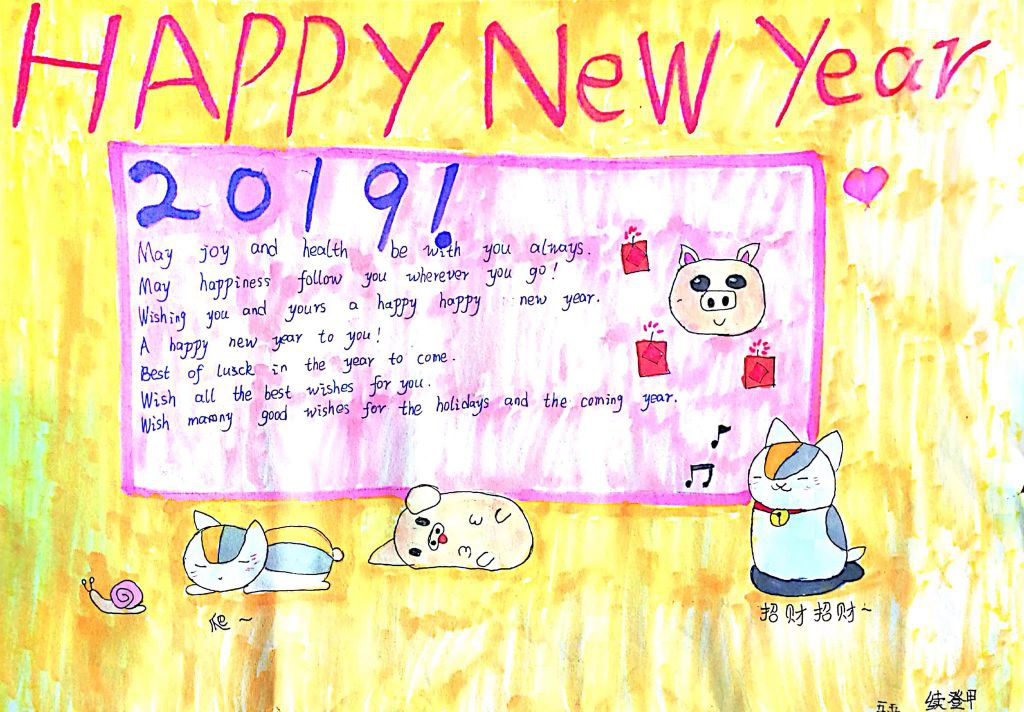 HAPPY New Year
2019!
May joy and health be with you always.
May happiness follow you wherever you go!
Wishing you and yours a happy happy new year.
A happy new year to you!
Best of lusck in the year to come.
Wish all the best wishes for you.
Wish maxony good wishes for the holidays and the coming year.
爬~
招财招财~
续登甲